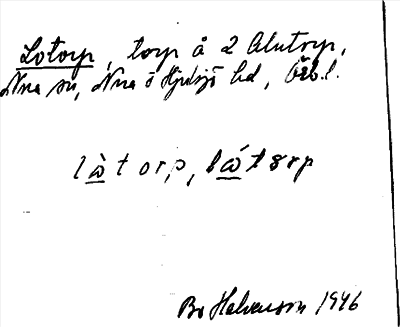 Lotorp, torp å 2 Alutorp,
Nna sn, Norra Hjulsjö hd, Örb. l.
lòtorp, lótorp
Bo Halvarson 1946